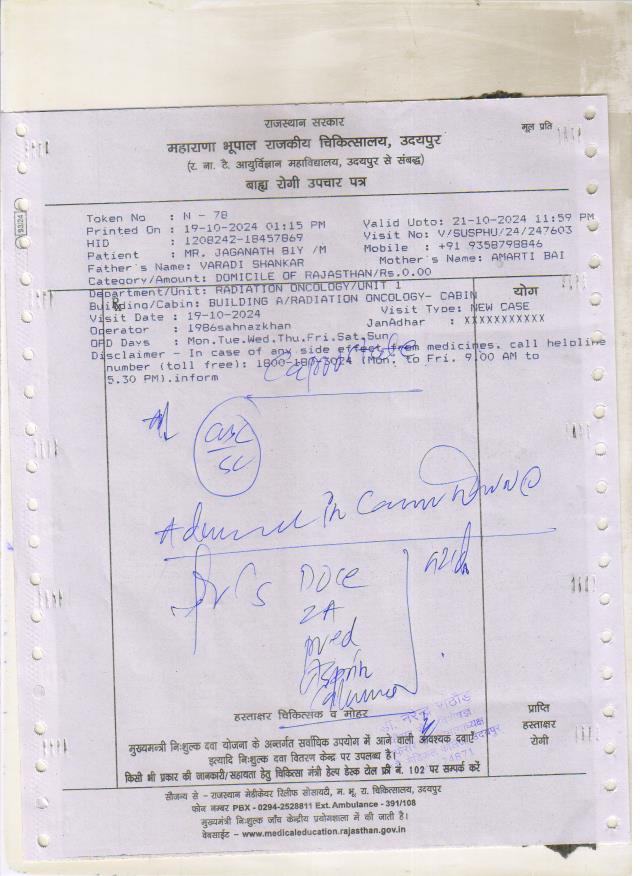 राजस्थान सरकार
मूल प्रति
महाराणा भूपाल राजकीय चिकित्सालय, उदयपुर
(र. ना. टै. आयुर्विज्ञान महाविद्यालय, उदयपुर से संबद्ध)
बाह्य रोगी उपचार पत्र
Token No : N - 78
Printed On : 19-10-2024 01:15 PM Valid Upto: 21-10-2024 11:59 PM
HID : 1208242-18457869 Visit No: V/SUSPHU/24/247603
Patient : MR. JAGANATH B1Y /M Mobile : +91 9358798846
Father's Name: VARADI SHANKAR Mother's Name: AMARTI BAI
Category/Amount: DOMICILE OF RAJASTHAN/Rs.0.00
Department/Unit: RADIATION ONCOLOGY/UNIT 1
योग
Building/Cabin: BUILDING A/RADIATION ONCOLOGY- CABIN
Visit Date : 19-10-2024 Visit Type: NEW CASE
Operator : 1986sahnazkhan JanAdhar : XXXXXXXXXXX
OPD Days : Mon.Tue.Wed.Thu.Fri.Sat.Sun
Disclaimer - In case of any side effect from medicines. call helpline
number (toll free): 1800-180-3024 (Mon. to Fri. 9.00 AM to
5.30 PM).inform
CBC
Adv
हस्ताक्षर चिकित्सक व मोहर
प्राप्ति
हस्ताक्षर
रोगी
मुख्यमन्त्री निःशुल्क दवा योजना के अन्तर्गत सर्वाधिक उपयोग में आने वाली आवश्यक दवाएँ
इत्यादि निःशुल्क दवा वितरण केन्द्र पर उपलब्ध है।
किसी भी प्रकार की जानकारी/सहायता हेतु चिकित्सा मंत्री हेल्प डेस्क टोल फ्री नं. 102 पर सम्पर्क करें
सौजन्य से - राजस्थान मेडीकेयर रिलीफ सोसायटी, म. भू. रा. चिकित्सालय, उदयपुर
फोन नम्बर PBX - 0294-2528811 Ext. Ambulance - 391/108
मुख्यमंत्री निःशुल्क जाँच केन्द्रीय प्रयोगशाला में की जाती है।
वेबसाईट - www.medicaleducation.rajasthan.gov.in